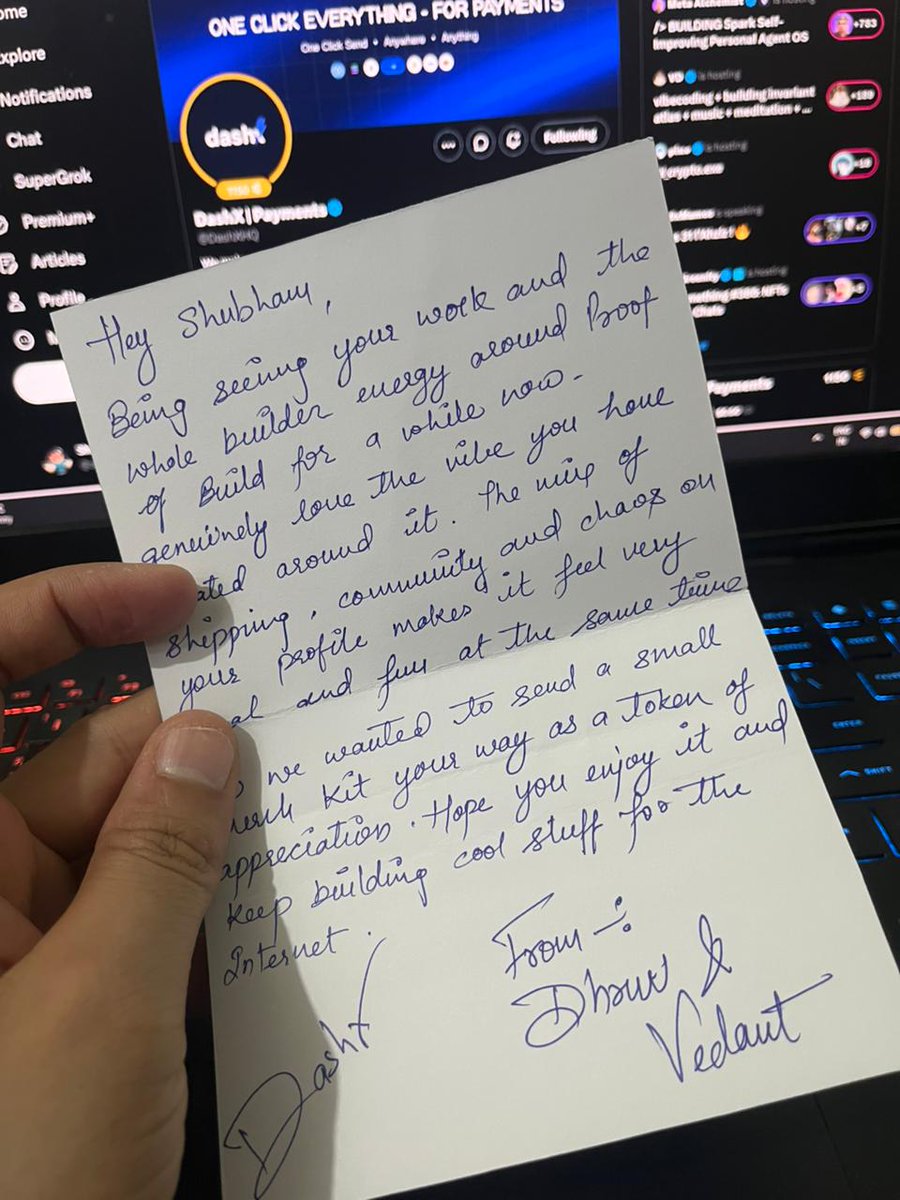 ome
xplore
Notifications
Chat
SuperGrok
Premium+
Articles
Profile
ONE CLICK EVERYTHING - FOR PAYMENTS
One Click Send • Anywhere • Anything
dash
Following
DashX | Payments
@DashXHQ
/> BUILDING Spark Self-
Improving Personal Agent OS
+783
VD is hosting
vibecoding + building invariant
atlas + music + meditation + ...
crypto.exe
ayments
SHIFT
Hey Shubham,
Being seeing your work and the
whole builder energy around Proof
of Build for a while now.
genuinely love the vibe you have
ated around it. The mix of
shipping, community and chaos on
your profile makes it feel very
al and fun at the same time
we wanted to send a small
kit your way as a token of
appreciation. Hope you enjoy it and
keep building cool stuff for the
Internet.
From -:
Dhruv &
Vedant
DashX